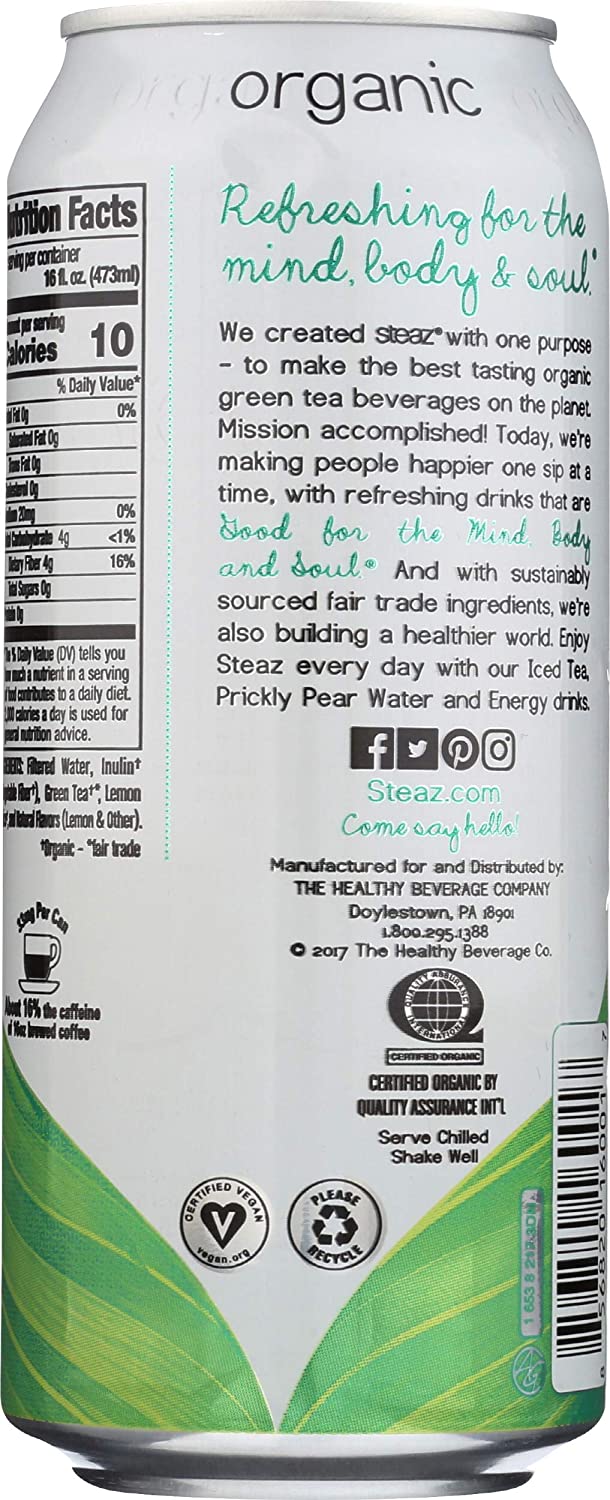 organic
Nutrition Facts
serving per container
16 fl. oz. (473ml)
Amount per serving
Calories 10
% Daily Value*
Total Fat 0g 0%
Saturated Fat 0g
Trans Fat 0g
Cholesterol 0g
Sodium 20mg 0%
Total Carbohydrate 4g <1%
Dietary Fiber 4g 16%
Total Sugars 0g
Protein 0g
The % Daily Value (DV) tells you
how much a nutrient in a serving
of food contributes to a daily diet.
2,000 calories a day is used for
general nutrition advice.
INGREDIENTS: Filtered Water, Inulin†
(Vegetable Fiber†), Green Tea†*, Lemon
and Natural Flavors (Lemon & Other).
†Organic - *fair trade
35mg Per Can
About 16% the caffeine
of 16oz brewed coffee
Refreshing for the
mind, body & soul.®
We created steaz® with one purpose
– to make the best tasting organic
green tea beverages on the planet.
Mission accomplished! Today, we're
making people happier one sip at a
time, with refreshing drinks that are
Good for the Mind, Body
and Soul.® And with sustainably
sourced fair trade ingredients, we're
also building a healthier world. Enjoy
Steaz every day with our Iced Tea,
Prickly Pear Water and Energy drinks.
Steaz.com
Come say hello!
Manufactured for and Distributed by:
THE HEALTHY BEVERAGE COMPANY
Doylestown, PA 18901
1.800.295.1388
© 2017 The Healthy Beverage Co.
QUALITY ASSURANCE
INTERNATIONAL
CERTIFIED ORGANIC
CERTIFIED ORGANIC BY
QUALITY ASSURANCE INT'L
Serve Chilled
Shake Well
CERTIFIED VEGAN
V
vegan.org
PLEASE
RECYCLE